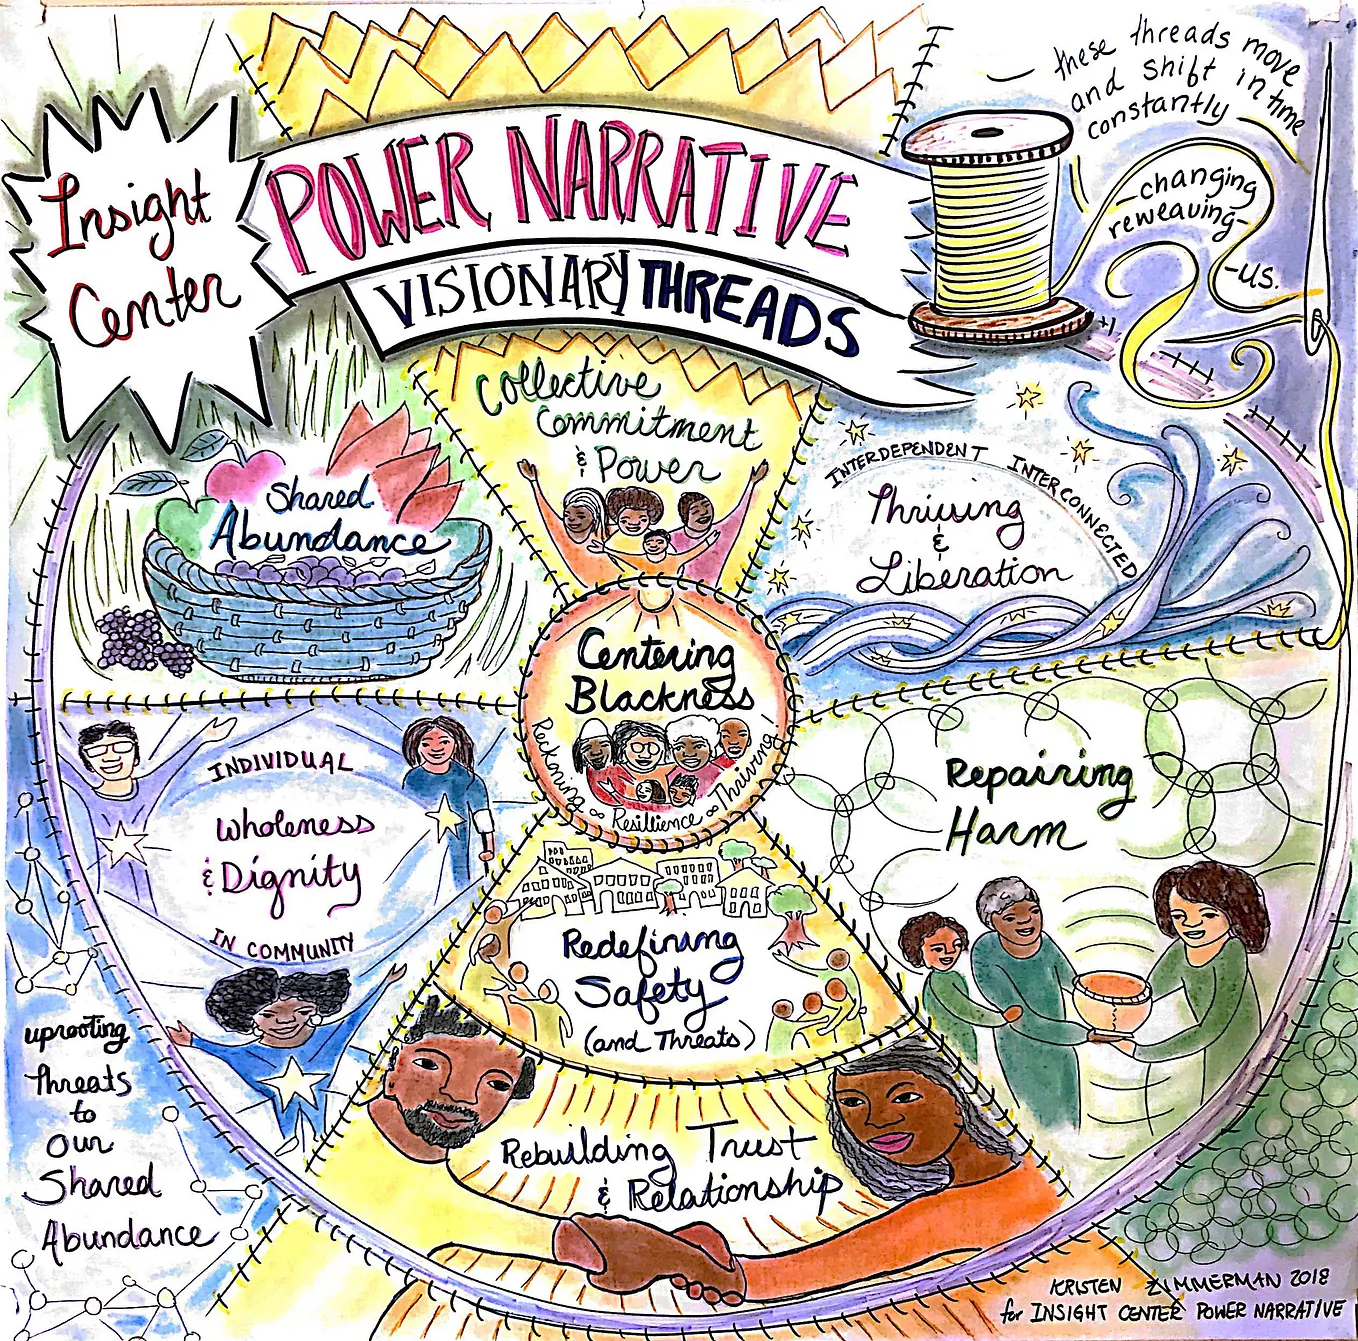 Insight
Center
POWER NARRATIVE
VISIONARY THREADS
these threads move
and shift in time
constantly
-changing
reweaving-
-us.
Collective
Commitment
& Power
Shared
Abundance
INTERDEPENDENT INTERCONNECTED
Thriving
&
Liberation
Centering
Blackness
Reckoning ∞ Resilience ∞ Thriving
INDIVIDUAL
Wholeness
& Dignity
IN COMMUNITY
Repairing
Harm
Redefining
Safety
(and Threats)
Rebuilding Trust
& Relationship
uprooting
Threats
to
our
Shared
Abundance
KRISTEN ZIMMERMAN 2018
for INSIGHT CENTER POWER NARRATIVE